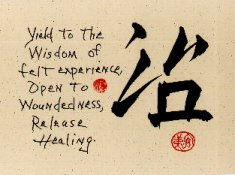 Yield to The
Wisdom of
felt experience,
Open to
Woundedness,
Release
Healing.
治